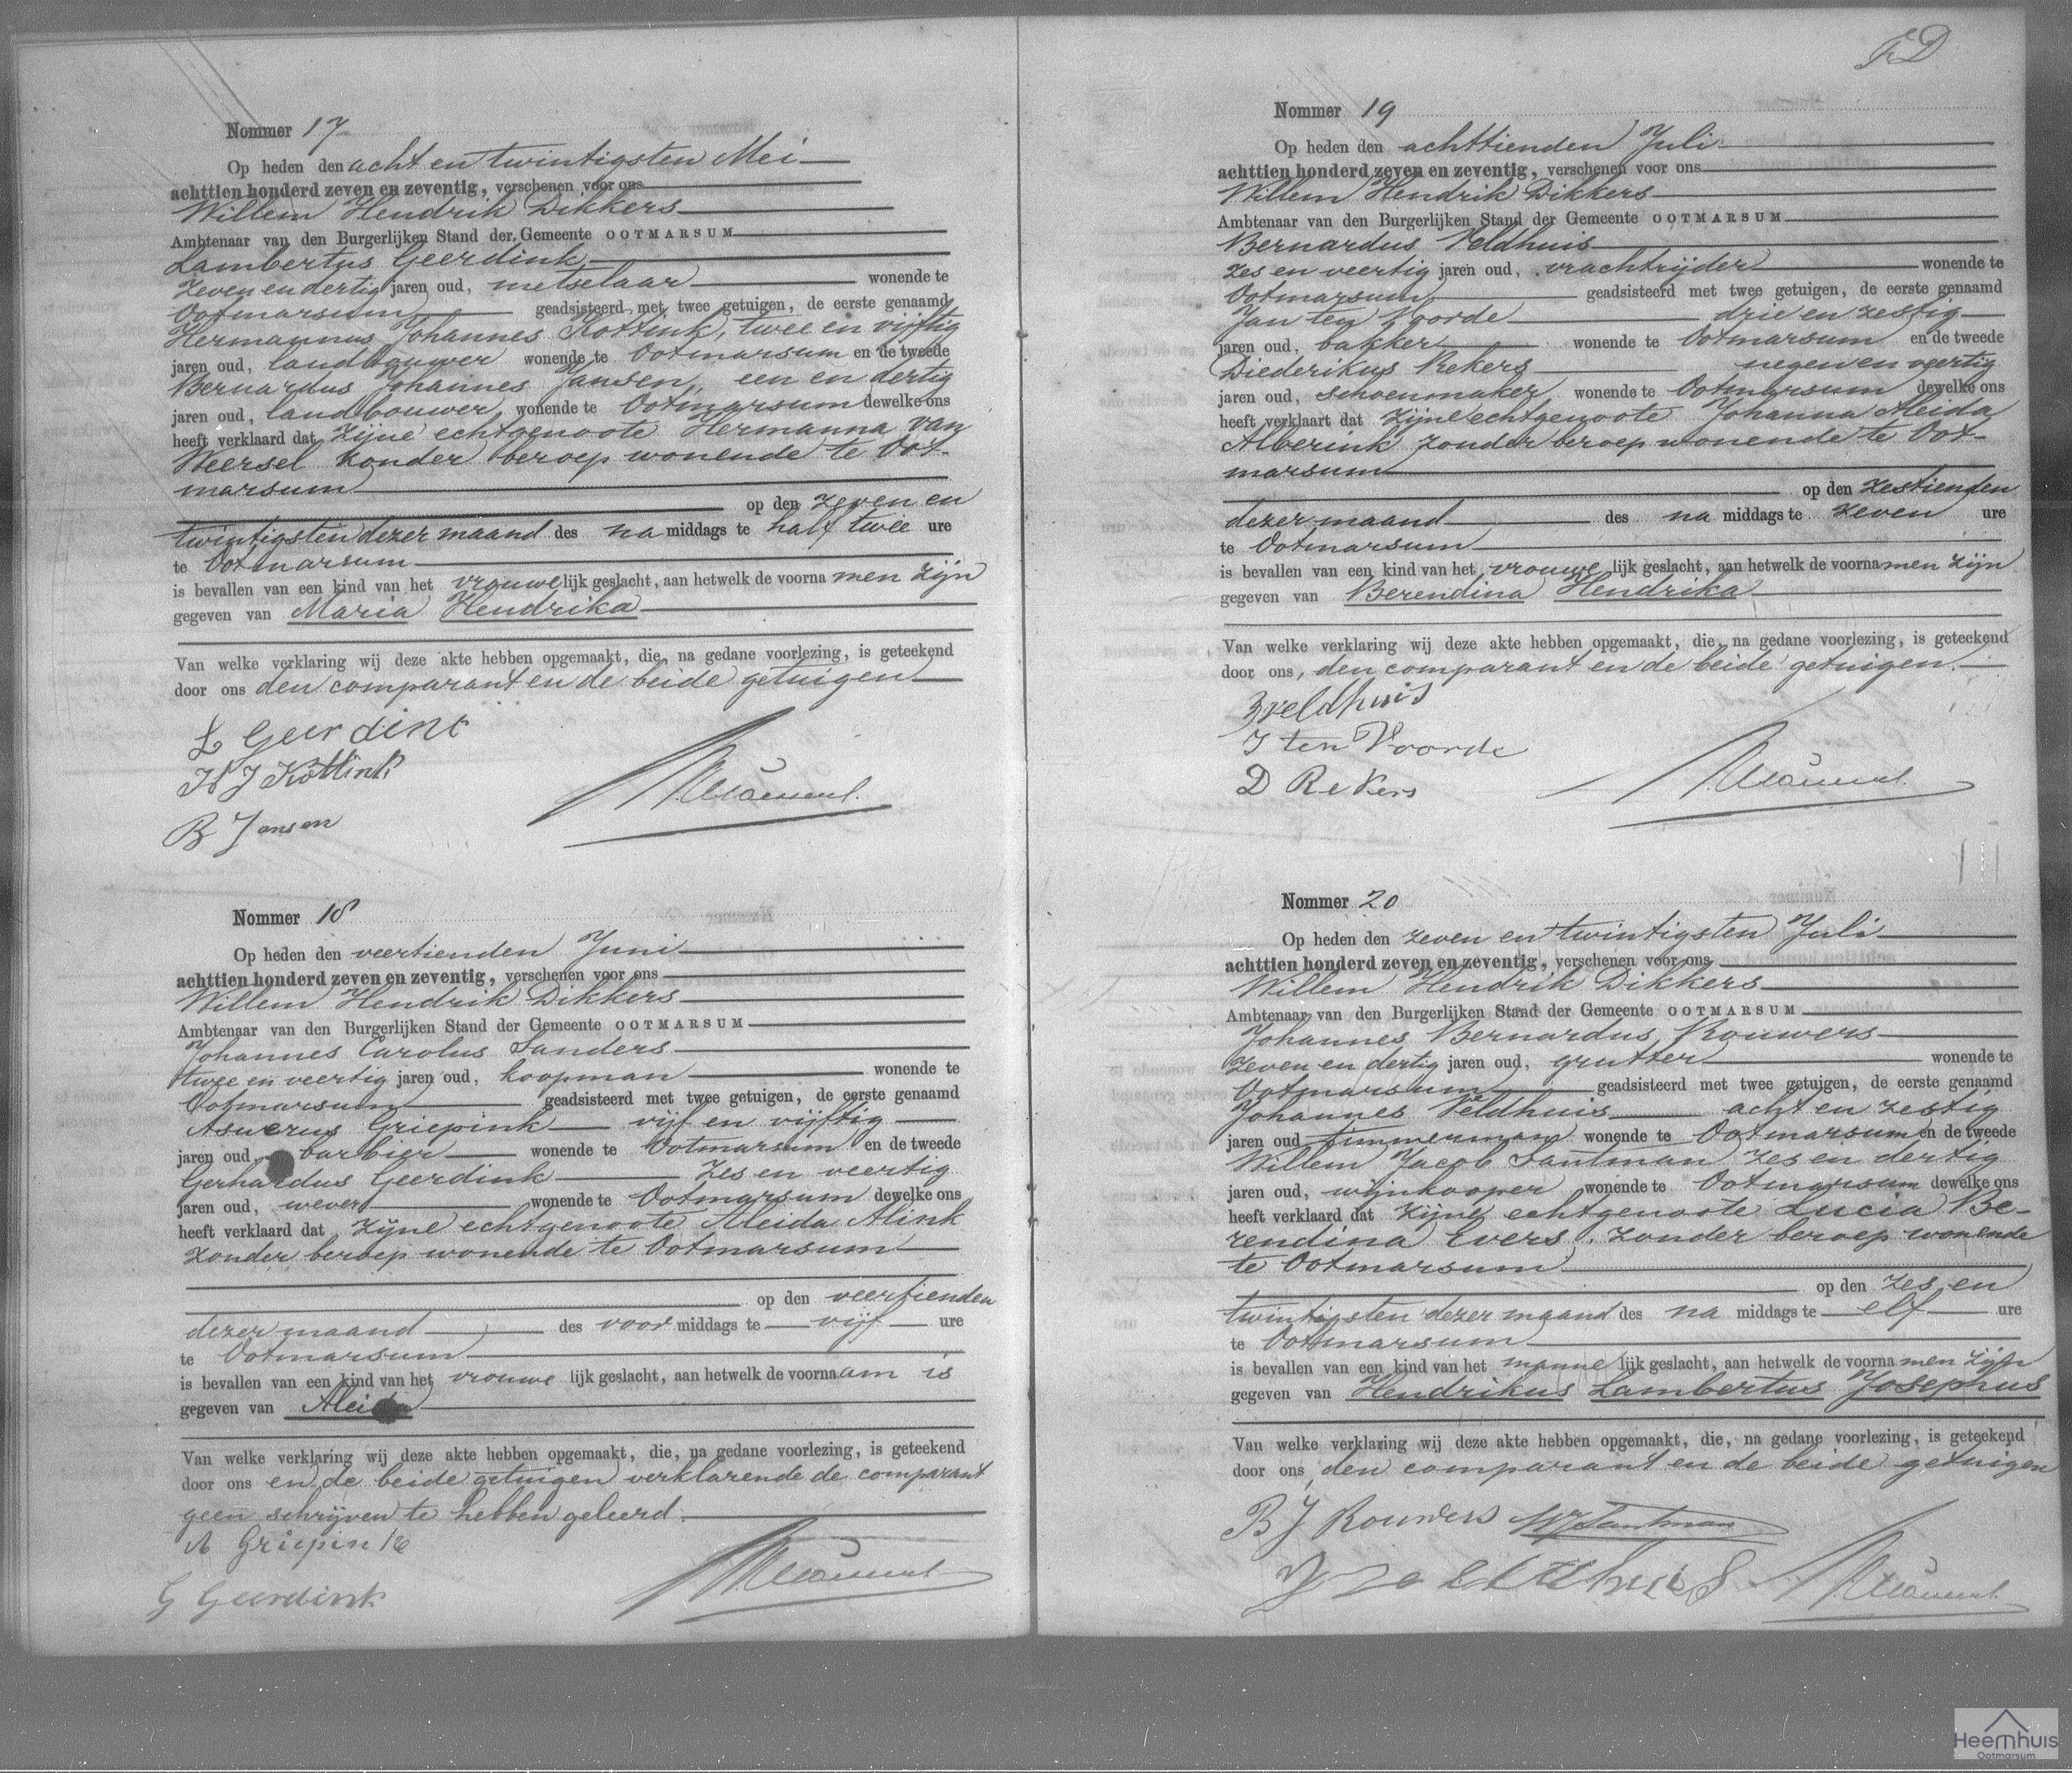 Nommer 17
Op heden den acht en twintigsten Mei
achttien honderd zeven en zeventig, verschenen voor ons
Willem Hendrik Dikkers
Ambtenaar van den Burgerlijken Stand der Gemeente OOTMARSUM
Lambertus Geerdink
zeven en dertig jaren oud, metselaar wonende te
Ootmarsum geadsisteerd met twee getuigen, de eerste genaamd
Hermannus Johannes Kottink, twee en vijftig
jaren oud, landbouwer wonende te Ootmarsum en de tweede
Bernardus Johannes Jansen, een en dertig
jaren oud, landbouwer, wonende te Ootmarsum dewelke ons
heeft verklaard dat zijne echtgenoote Hermanna van
Weersel zonder beroep wonende te Oot-
marsum
op den zeven en
twintigsten dezer maand des na middags te half twee ure
te Ootmarsum
is bevallen van een kind van het vrouwelijk geslacht, aan hetwelk de voornamen zijn
gegeven van Maria Hendrika
Van welke verklaring wij deze akte hebben opgemaakt, die, na gedane voorlezing, is geteekend
door ons den comparant en de beide getuigen
L Geerdink
H J Kottink
B Jansen
Nommer 18
Op heden den veertienden Juni
achttien honderd zeven en zeventig, verschenen voor ons
Willem Hendrik Dikkers
Ambtenaar van den Burgerlijken Stand der Gemeente OOTMARSUM
Johannes Carolus Sanders
twee en veertig jaren oud, koopman wonende te
Ootmarsum geadsisteerd met twee getuigen, de eerste genaamd
Asuerus Griepink vijf en vijftig
jaren oud barbier wonende te Ootmarsum en de tweede
Gerhardus Geerdink zes en veertig
jaren oud, wever wonende te Ootmarsum dewelke ons
heeft verklaard dat zijne echtgenoote Aleida Alink
zonder beroep wonende te Ootmarsum
op den veertienden
dezer maand des voor middags te vijf ure
te Ootmarsum
is bevallen van een kind van het vrouwelijk geslacht, aan hetwelk de voornaam is
gegeven van Aleida
Van welke verklaring wij deze akte hebben opgemaakt, die, na gedane voorlezing, is geteekend
door ons en de beide getuigen verklarende de comparant
geen schrijven te hebben geleerd.
A Griepink
G Geerdink
Nommer 19
Op heden den achttienden Juli
achttien honderd zeven en zeventig, verschenen voor ons
Willem Hendrik Dikkers
Ambtenaar van den Burgerlijken Stand der Gemeente OOTMARSUM
Bernardus Veldhuis
zes en veertig jaren oud, vrachtrijder wonende te
Ootmarsum geadsisteerd met twee getuigen, de eerste genaamd
Jan ten Voorde drie en zestig
jaren oud, bakker wonende te Ootmarsum en de tweede
Diederikus Rekers negen en veertig
jaren oud, schoenmaker wonende te Ootmarsum dewelke ons
heeft verklaart dat zijne echtgenoote Johanna Aleida
Alberink zonder beroep wonende te Oot-
marsum
op den zestienden
dezer maand des na middags te zeven ure
te Ootmarsum
is bevallen van een kind van het vrouwelijk geslacht, aan hetwelk de voornamen zijn
gegeven van Berendina Hendrika
Van welke verklaring wij deze akte hebben opgemaakt, die, na gedane voorlezing, is geteekend
door ons, den comparant en de beide getuigen.
B Veldhuis
J ten Voorde
D Rekers
Nommer 20
Op heden den zeven en twintigsten Juli
achttien honderd zeven en zeventig, verschenen voor ons
Willem Hendrik Dikkers
Ambtenaar van den Burgerlijken Stand der Gemeente OOTMARSUM
Johannes Bernardus Rouwers
zeven en dertig jaren oud, grutter wonende te
Ootmarsum geadsisteerd met twee getuigen, de eerste genaamd
Johannes Veldhuis acht en zestig
jaren oud timmerman wonende te Ootmarsum en de tweede
Willem Jacob Santman zes en dertig
jaren oud, wijnkooper wonende te Ootmarsum dewelke ons
heeft verklaard dat zijne echtgenoote Lucia Be-
rendina Evers, zonder beroep wonende
te Ootmarsum
op den zes en
twintigsten dezer maand des na middags te elf ure
te Ootmarsum
is bevallen van een kind van het mannelijk geslacht, aan hetwelk de voornamen zijn
gegeven van Hendrikus Lambertus Josephus
Van welke verklaring wij deze akte hebben opgemaakt, die, na gedane voorlezing, is geteekend
door ons den comparant en de beide getuigen
B J Rouwers WJ Santman
J Veldhuis
Heemhuis
Ootmarsum